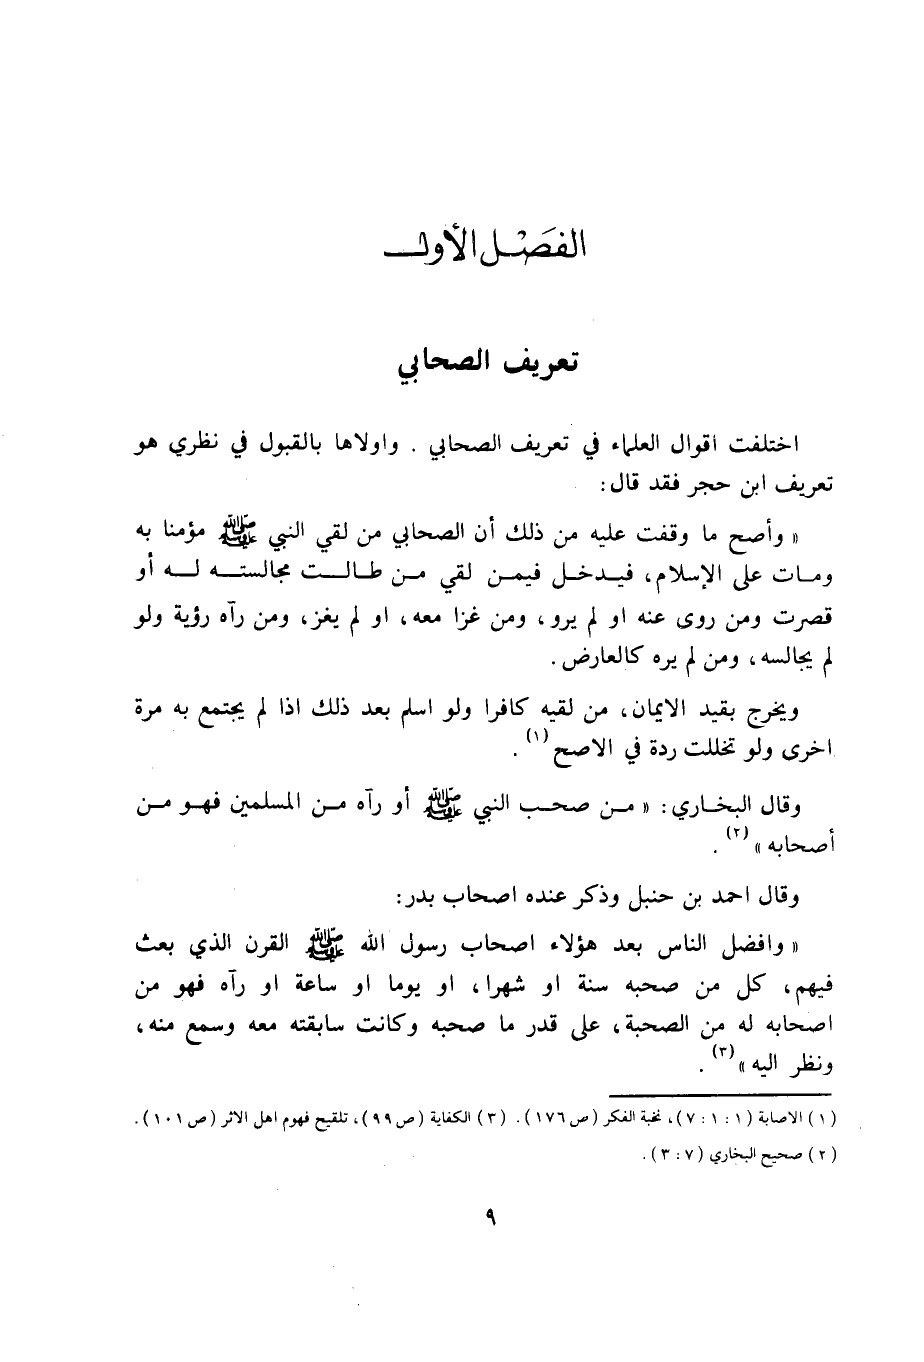 الفَصْل الأول
تعريف الصحابي
اختلفت اقوال العلماء في تعريف الصحابي . واولاها بالقبول في نظري هو
تعريف ابن حجر فقد قال :
« وأصح ما وقفت عليه من ذلك أن الصحابي من لقي النبي ﷺ مؤمنا به
ومات على الإسلام ، فيدخل فيمن لقي من طالت مجالسته له أو
قصرت ومن روى عنه او لم يرو ، ومن غزا معه ، او لم يغز ، ومن رآه رؤية ولو
لم يجالسه ، ومن لم يره كالعارض .
ويخرج بقيد الايمان ، من لقيه كافرا ولو اسلم بعد ذلك اذا لم يجتمع به مرة
اخرى ولو تخللت ردة في الاصح (١) .
وقال البخاري : « من صحب النبي ﷺ أو رآه من المسلمين فهو من
أصحابه » (٢) .
وقال احمد بن حنبل وذكر عنده اصحاب بدر :
« وافضل الناس بعد هؤلاء اصحاب رسول الله ﷺ القرن الذي بعث
فيهم ، كل من صحبه سنة او شهرا ، او يوما او ساعة او رآه فهو من
اصحابه له من الصحبة ، على قدر ما صحبه وكانت سابقته معه وسمع منه ،
ونظر اليه » (٣) .
(١) الاصابة (١ : ١ : ٧) ، نخبة الفكر (ص ١٧٦) . (٣) الكفاية (ص ٩٩) ، تلقيح فهوم اهل الاثر (ص ١٠١) .
(٢) صحيح البخاري (٧ : ٣) .
٩